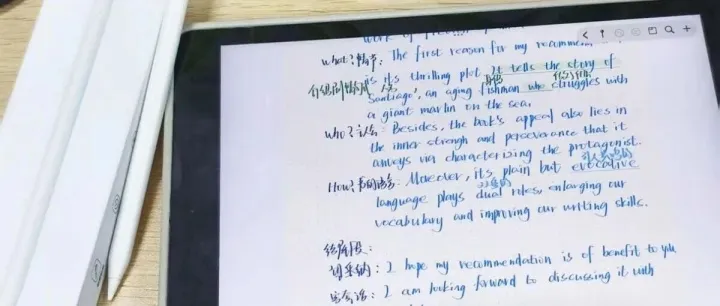 work of
What?情节: The first reason for my recommen
is its thrilling plot. It tells the story of
介绍
Santiago, an aging fishman who struggles with
a giant marlin on the sea.
Who? Besides, the book's appeal also lies in
the inner strengh and perseverance that it
conveys via characterizing the protagonist.
How? Moreover, its plain but evocative
language plays dual roles, enlarging our
vocabulary and improving our writing skills.
结尾段:
I hope my recommendation is of benefit to you
I am looking forward to discussing it with